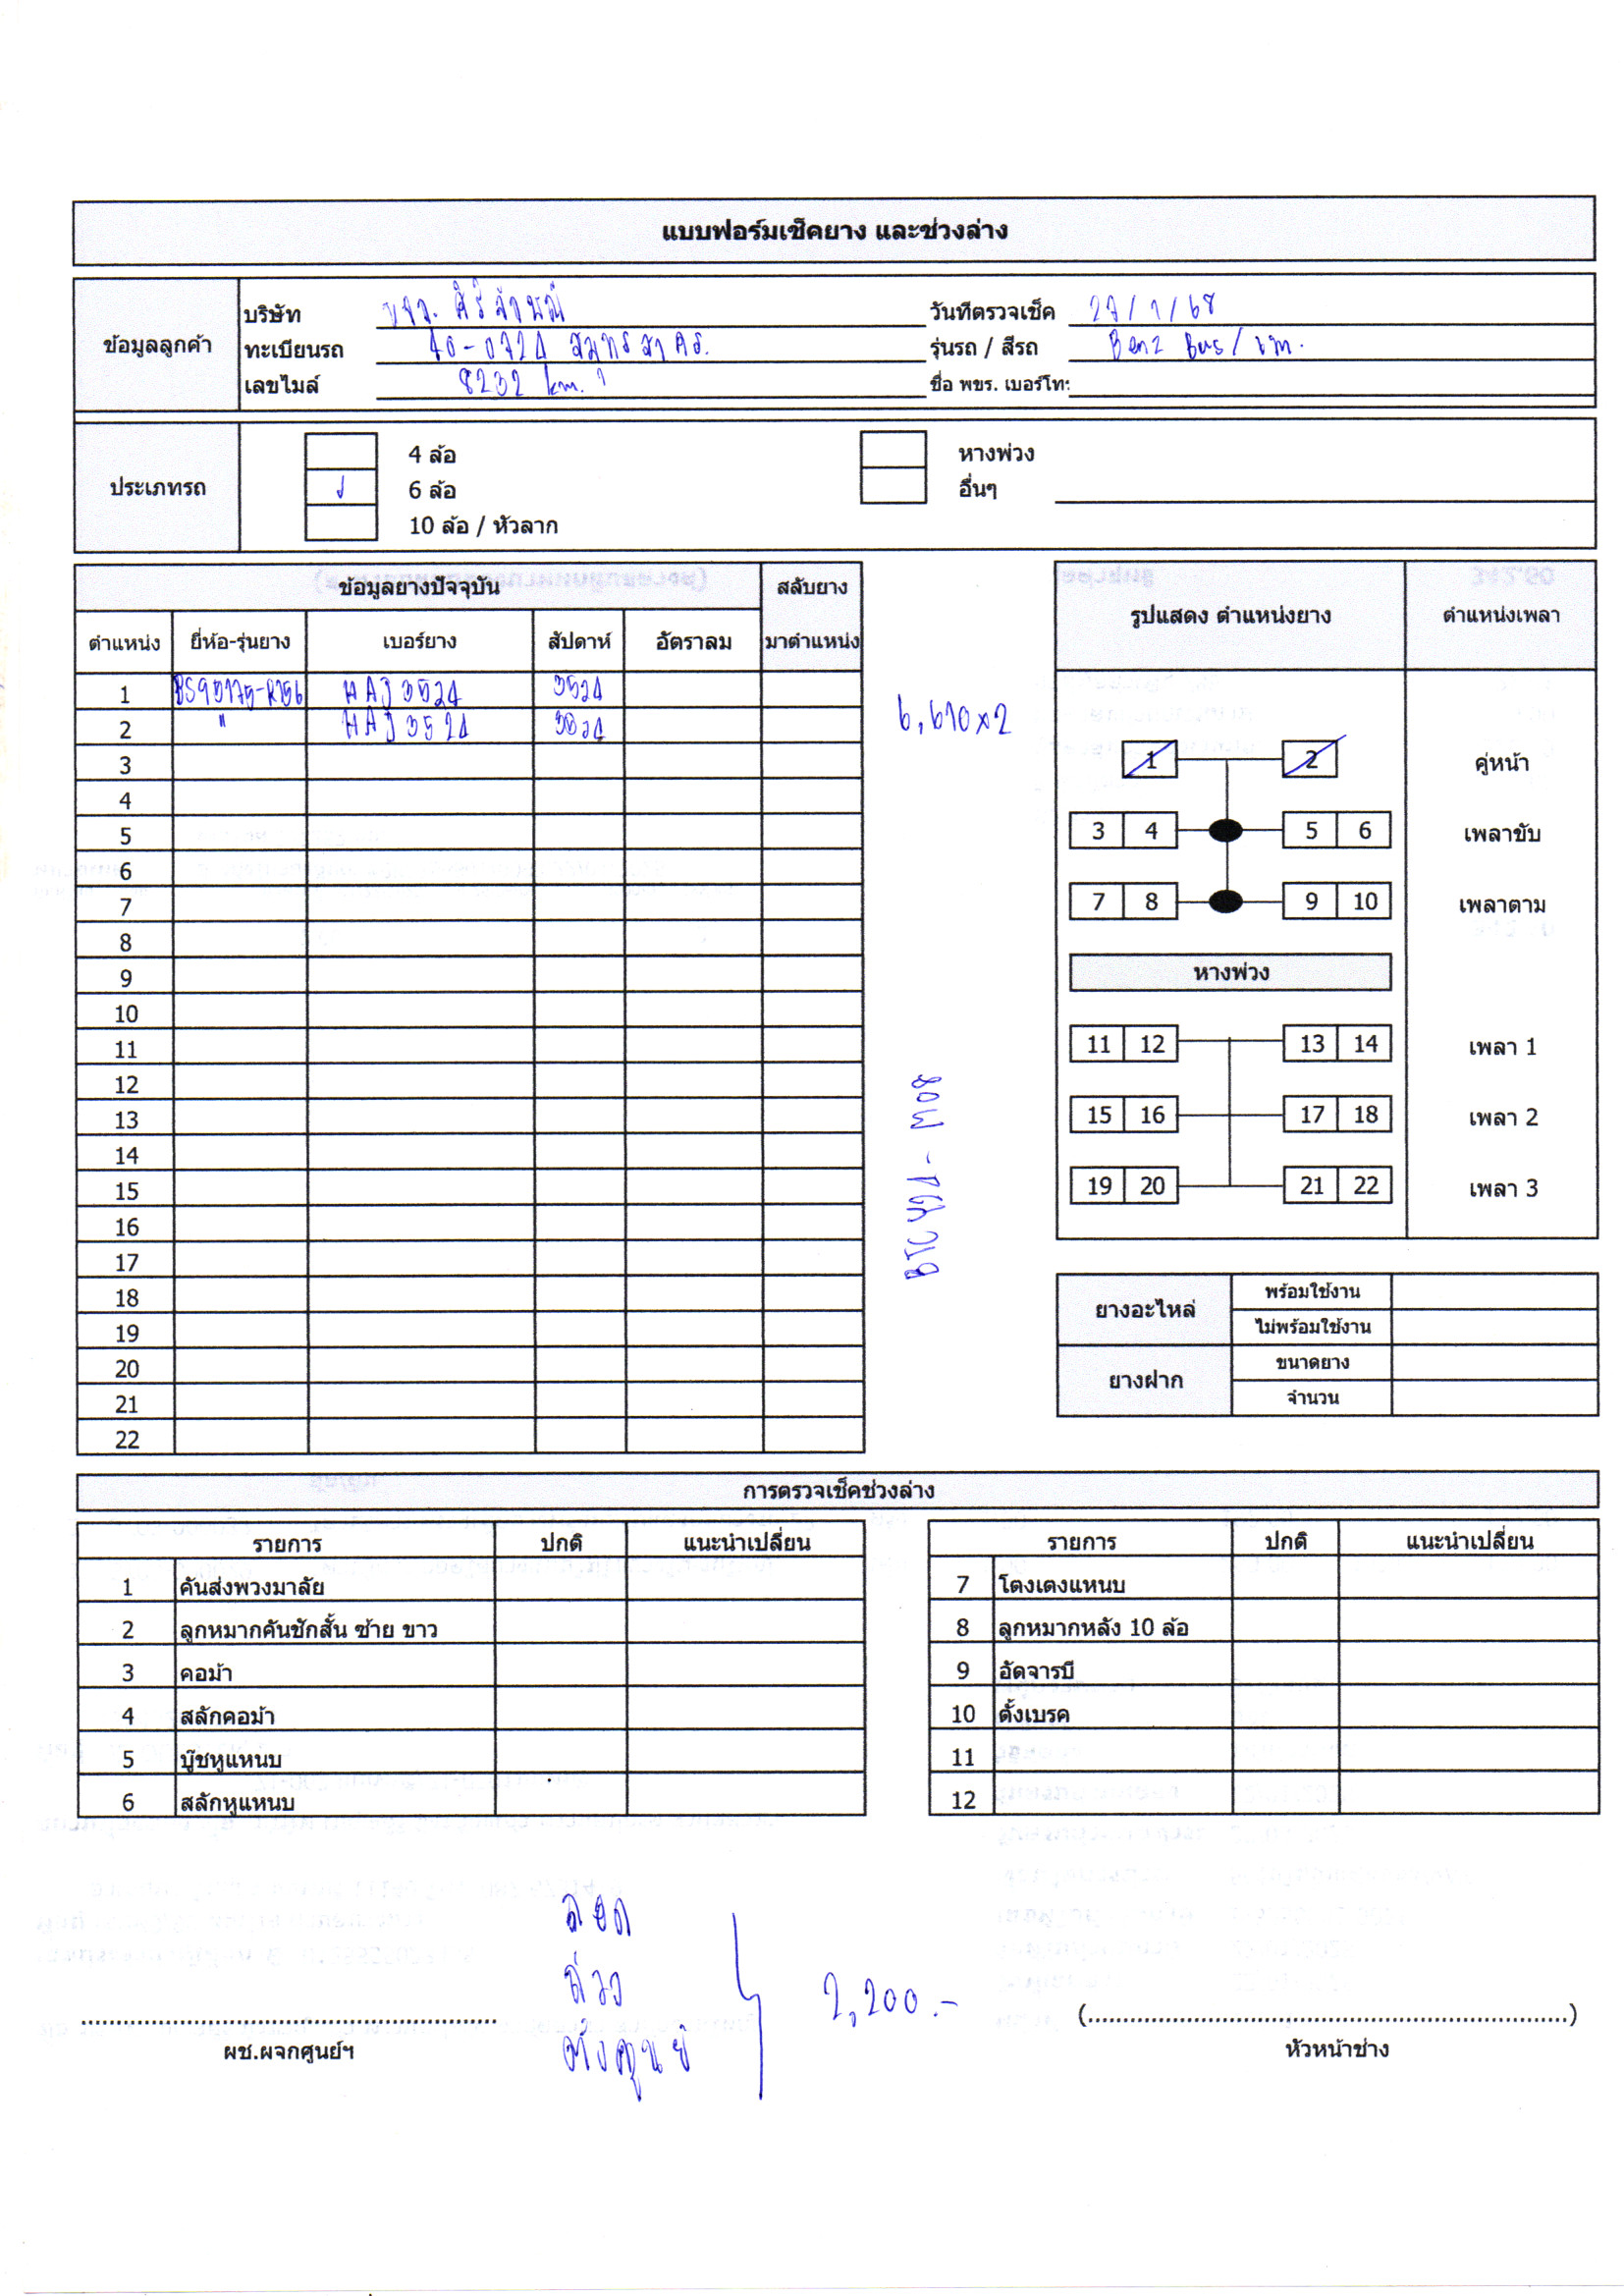 แบบฟอร์มเช็คยาง และช่วงล่าง
ข้อมูลลูกค้า
บริษัท หจก. ศิริลักษณ์
วันที่ตรวจเช็ค 27/1/68
ทะเบียนรถ 40-0724 สมุทรสาคร.
รุ่นรถ / สีรถ Benz Bus/
เลขไมล์ 8232 km.
ชื่อ พขร. เบอร์โทร
ประเภทรถ
4 ล้อ
6 ล้อ
10 ล้อ / หัวลาก
หางพ่วง
อื่นๆ
ข้อมูลยางปัจจุบัน สลับยาง
ตำแหน่ง ยี่ห้อ-รุ่นยาง เบอร์ยาง สัปดาห์ อัตราลม มาตำแหน่ง
1 BS95175-R156 HAJ3524 3524
2 " HAJ3524 3524
3
4
5
6
7
8
9
10
11
12
13
14
15
16
17
18
19
20
21
22
6,610x2
M08
รูปแสดง ตำแหน่งยาง ตำแหน่งเพลา
1 2 คู่หน้า
3 4 5 6 เพลาขับ
7 8 9 10 เพลาตาม
หางพ่วง
11 12 13 14 เพลา 1
15 16 17 18 เพลา 2
19 20 21 22 เพลา 3
ยางอะไหล่ พร้อมใช้งาน
ไม่พร้อมใช้งาน
ยางฝาก ขนาดยาง
จำนวน
การตรวจเช็คช่วงล่าง
รายการ ปกติ แนะนำเปลี่ยน
1 คันส่งพวงมาลัย
2 ลูกหมากคันชักสั้น ซ้าย ขาว
3 คอม้า
4 สลักคอม้า
5 บู๊ชหูแหนบ
6 สลักหูแหนบ
รายการ ปกติ แนะนำเปลี่ยน
7 โตงเตงแหนบ
8 ลูกหมากหลัง 10 ล้อ
9 อัดจารบี
10 ตั้งเบรค
11
12
ถอด
ถ่วง
ตั้งศูนย์
2,200.-
ผช.ผจกศูนย์ฯ
(..........)
หัวหน้าช่าง